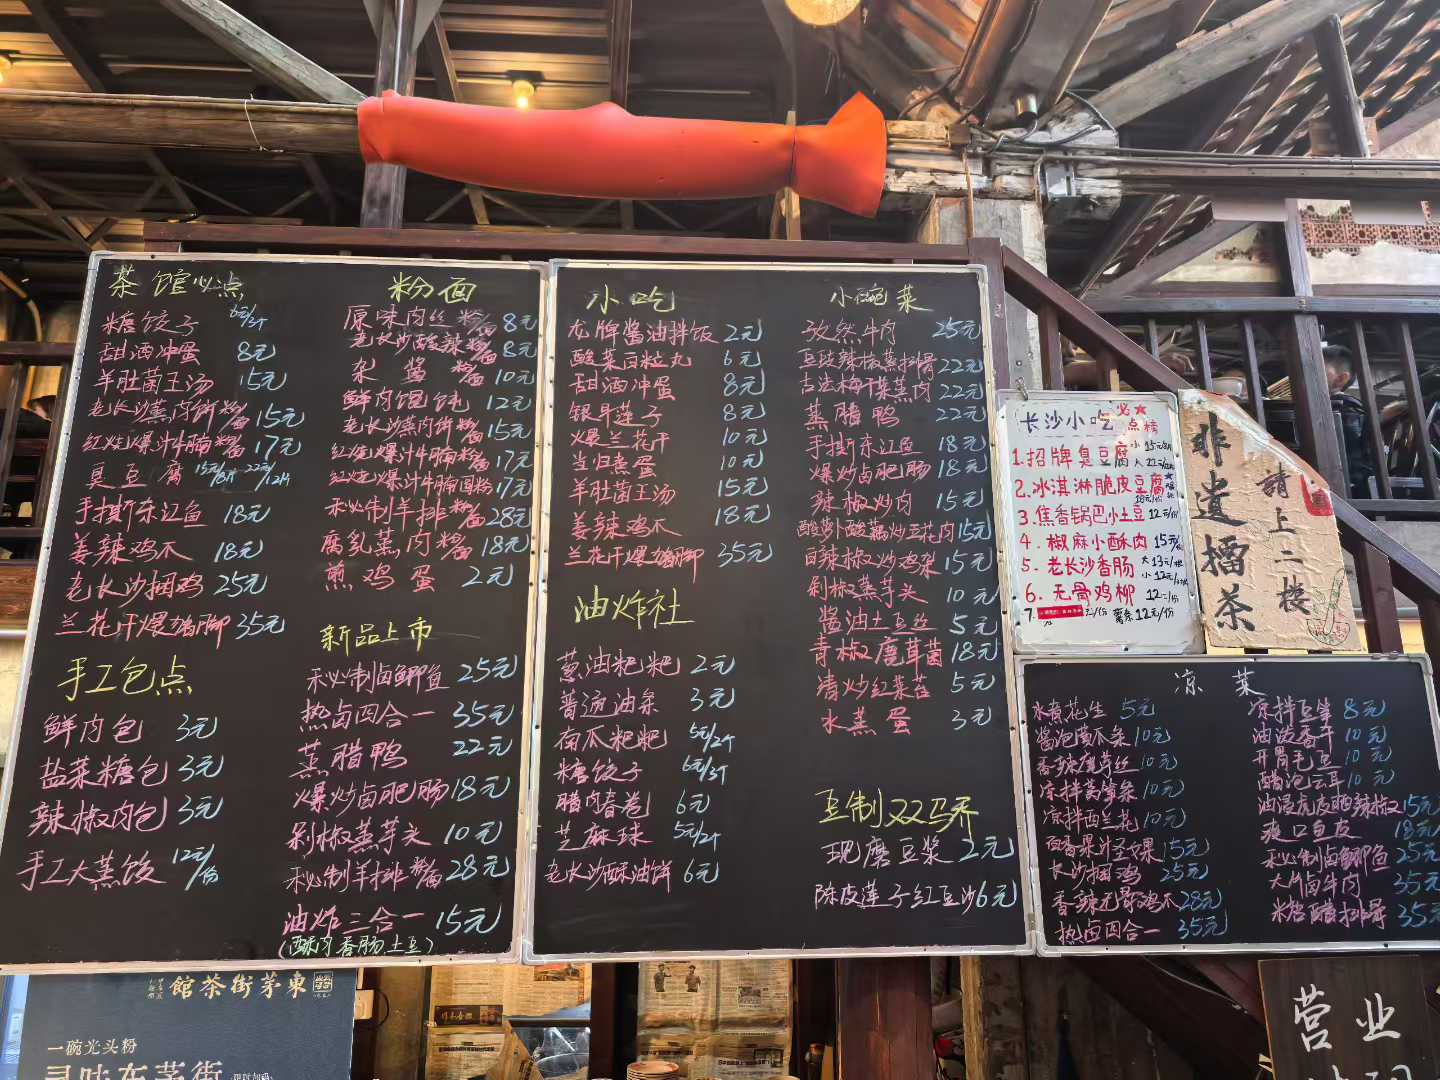 茶馆必点
糖饺子 6元/3个
甜酒冲蛋 8元
羊肚菌王汤 15元
老长沙蒸肉饼粉面 15元
红烧爆汁牛腩粉面 17元
臭豆腐 15元/8片 22元/12片
手撕东江鱼 18元
姜辣鸡爪 18元
老长沙捆鸡 25元
兰花干爆猪脚 35元
手工包点
鲜肉包 3元
盐菜糖包 3元
辣椒肉包 3元
手工大蒸饺 12元/份
粉面
原味肉丝粉面 8元
老长沙酸辣粉面 8元
杂酱粉面 10元
鲜肉馄饨 12元
老长沙蒸肉饼粉面 15元
红烧爆汁牛腩粉面 17元
红烧爆汁牛腩圆粉 17元
秘制羊排粉面 28元
腐乳蒸肉酱 18元
煎鸡蛋 2元
新品上市
秘制卤鲫鱼 25元
热卤四合一 35元
蒸腊鸭 22元
爆炒卤肥肠 18元
剁椒蒸芋头 10元
秘制羊排粉面 28元
油炸三合一 15元
(酥肉香肠土豆)
小吃
龙牌酱油拌饭 2元
酸菜豆粒丸 6元
甜酒冲蛋 8元
银耳莲子 8元
爆兰花干 10元
当归煮蛋 10元
羊肚菌王汤 15元
姜辣鸡爪 18元
兰花干爆猪脚 35元
油炸社
葱油粑粑 2元
普通油条 3元
南瓜粑粑 5元/2个
糖饺子 6元/3个
腊肉春卷 6元
芝麻球 5元/2个
老长沙酥油饼 6元
小碗菜
孜然牛肉 25元
豆豉辣椒蒸排骨 22元
古法梅干菜蒸肉 22元
蒸腊鸭 22元
手撕东江鱼 18元
爆炒卤肥肠 18元
辣椒炒肉 15元
酸萝卜酸藕炒五花肉 15元
白辣椒炒鸡杂 15元
剁椒蒸芋头 10元
酱油土豆丝 5元
青椒磨茸菌 18元
清炒红菜苔 5元
水蒸蛋 3元
豆制双马乔
现磨豆浆 2元
陈皮莲子红豆沙 6元
长沙小吃 必点榜
1.招牌臭豆腐 小15元 大22元
2.冰淇淋脆皮豆腐 18元/份
3.焦香锅巴小土豆 12元/份
4.椒麻小酥肉 15元
5.老长沙香肠 大13元 小12元
6.无骨鸡柳 12元/份
7. 薯条12元/份
非遗擂茶
請上二楼
凉菜
水煮花生 5元
酱泡黄瓜条 10元
香辣魔芋丝 10元
凉拌莴笋条 10元
凉拌西兰花 10元
百香果汁圣女果 15元
长沙捆鸡 25元
香辣无骨鸡爪 28元
热卤四合一 35元
凉拌豆笋 8元
油泼香干 10元
开胃毛豆 10元
醋泡云耳 10元
油浸虎皮晒辣椒 15元
爽口白皮 18元
秘制卤鲫鱼 25元
大片卤牛肉 35元
米粉醋排骨 35元
東茅街茶館
一碗光头粉
寻味东茅街
营业